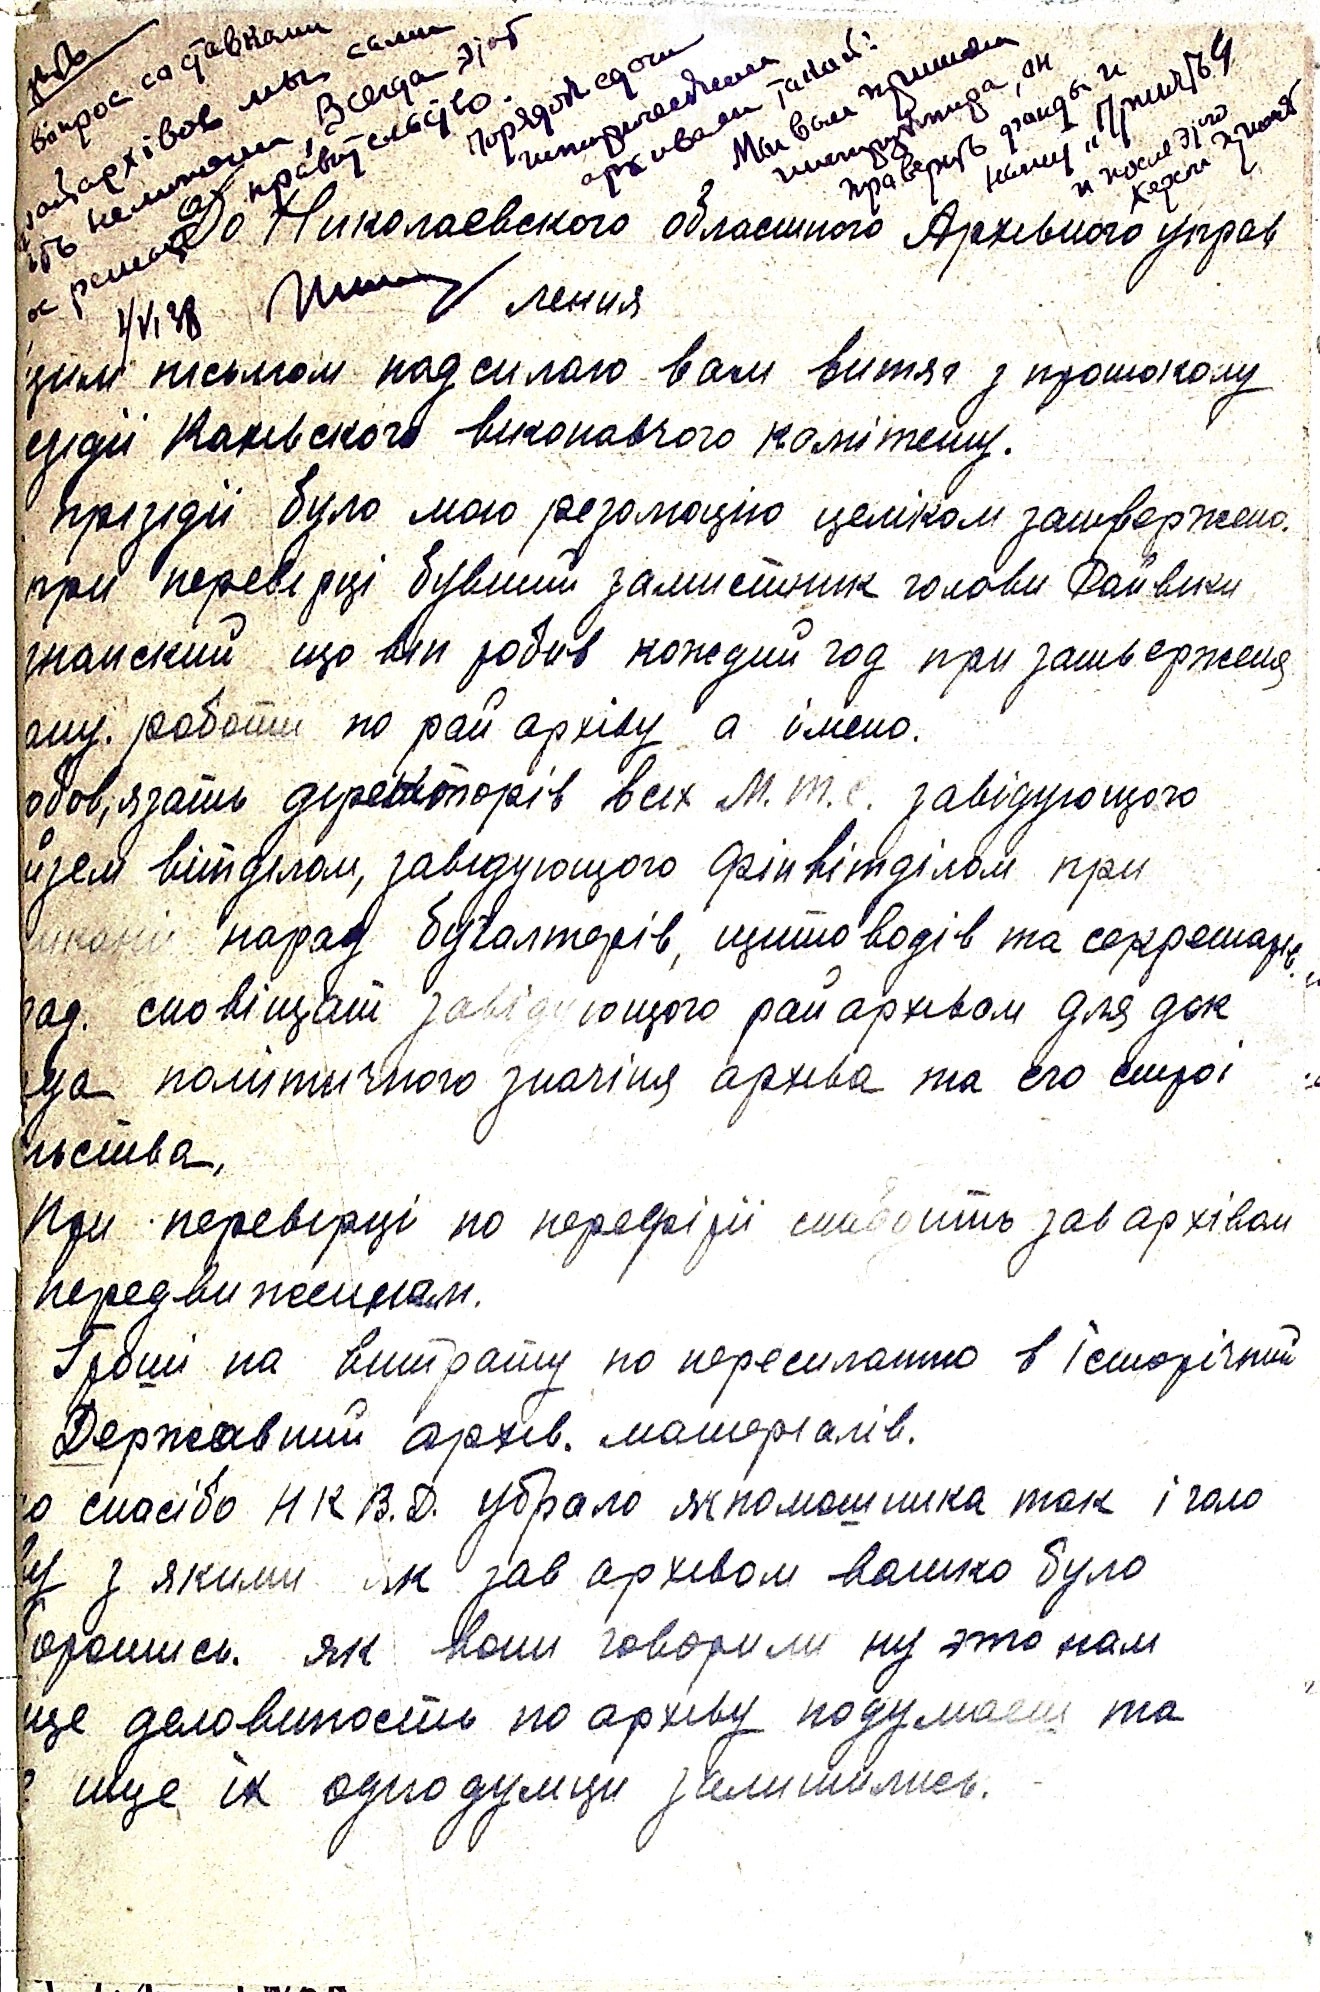 Вопрос со ставками
райархівов мы сами
решаем
Всегда этот
правительство.
Порядок сдачи
исторических
архивам такой:
Мы вам пришлем
инструктора, он
проверит фонды и
напиш "Принять"
и после этого
Херсон примет
1/VI 38
До Николаевского областного Архівного управ
ления
цим письмом надсилаю вам витяг з протоколу
езідії Кахівского виконавчого комітету.
прізідії було мою резолюцію целіком затвержено.
при перевірці бувший замистник голови Райвики
що він робив кождий год при затверженя
ану. работи по рай архіву а імено.
обов,язать діректорів всех М.Т.С. завідующого
йзем вітділом, завідующого фінвітділом при
нарад бугалтерів, щитоводів та секретарів.
рад. сповіщат завідующого райархівом для док
да політичного значіня архіва та его строі
льства,
При перевірці по переферії снабдить зав архівам
передвиженнам.
Гроши на витрату по пересиланню в Історічний
Державний архів. матеріалів.
о спасібо Н К В.Д. убрало як помошника так і голо
ву з якими як зав архівом важко було
оротись. як вони говорили ну это нам
ще деловитость по архіву подумаеш та
ище їх однодумци залишились.